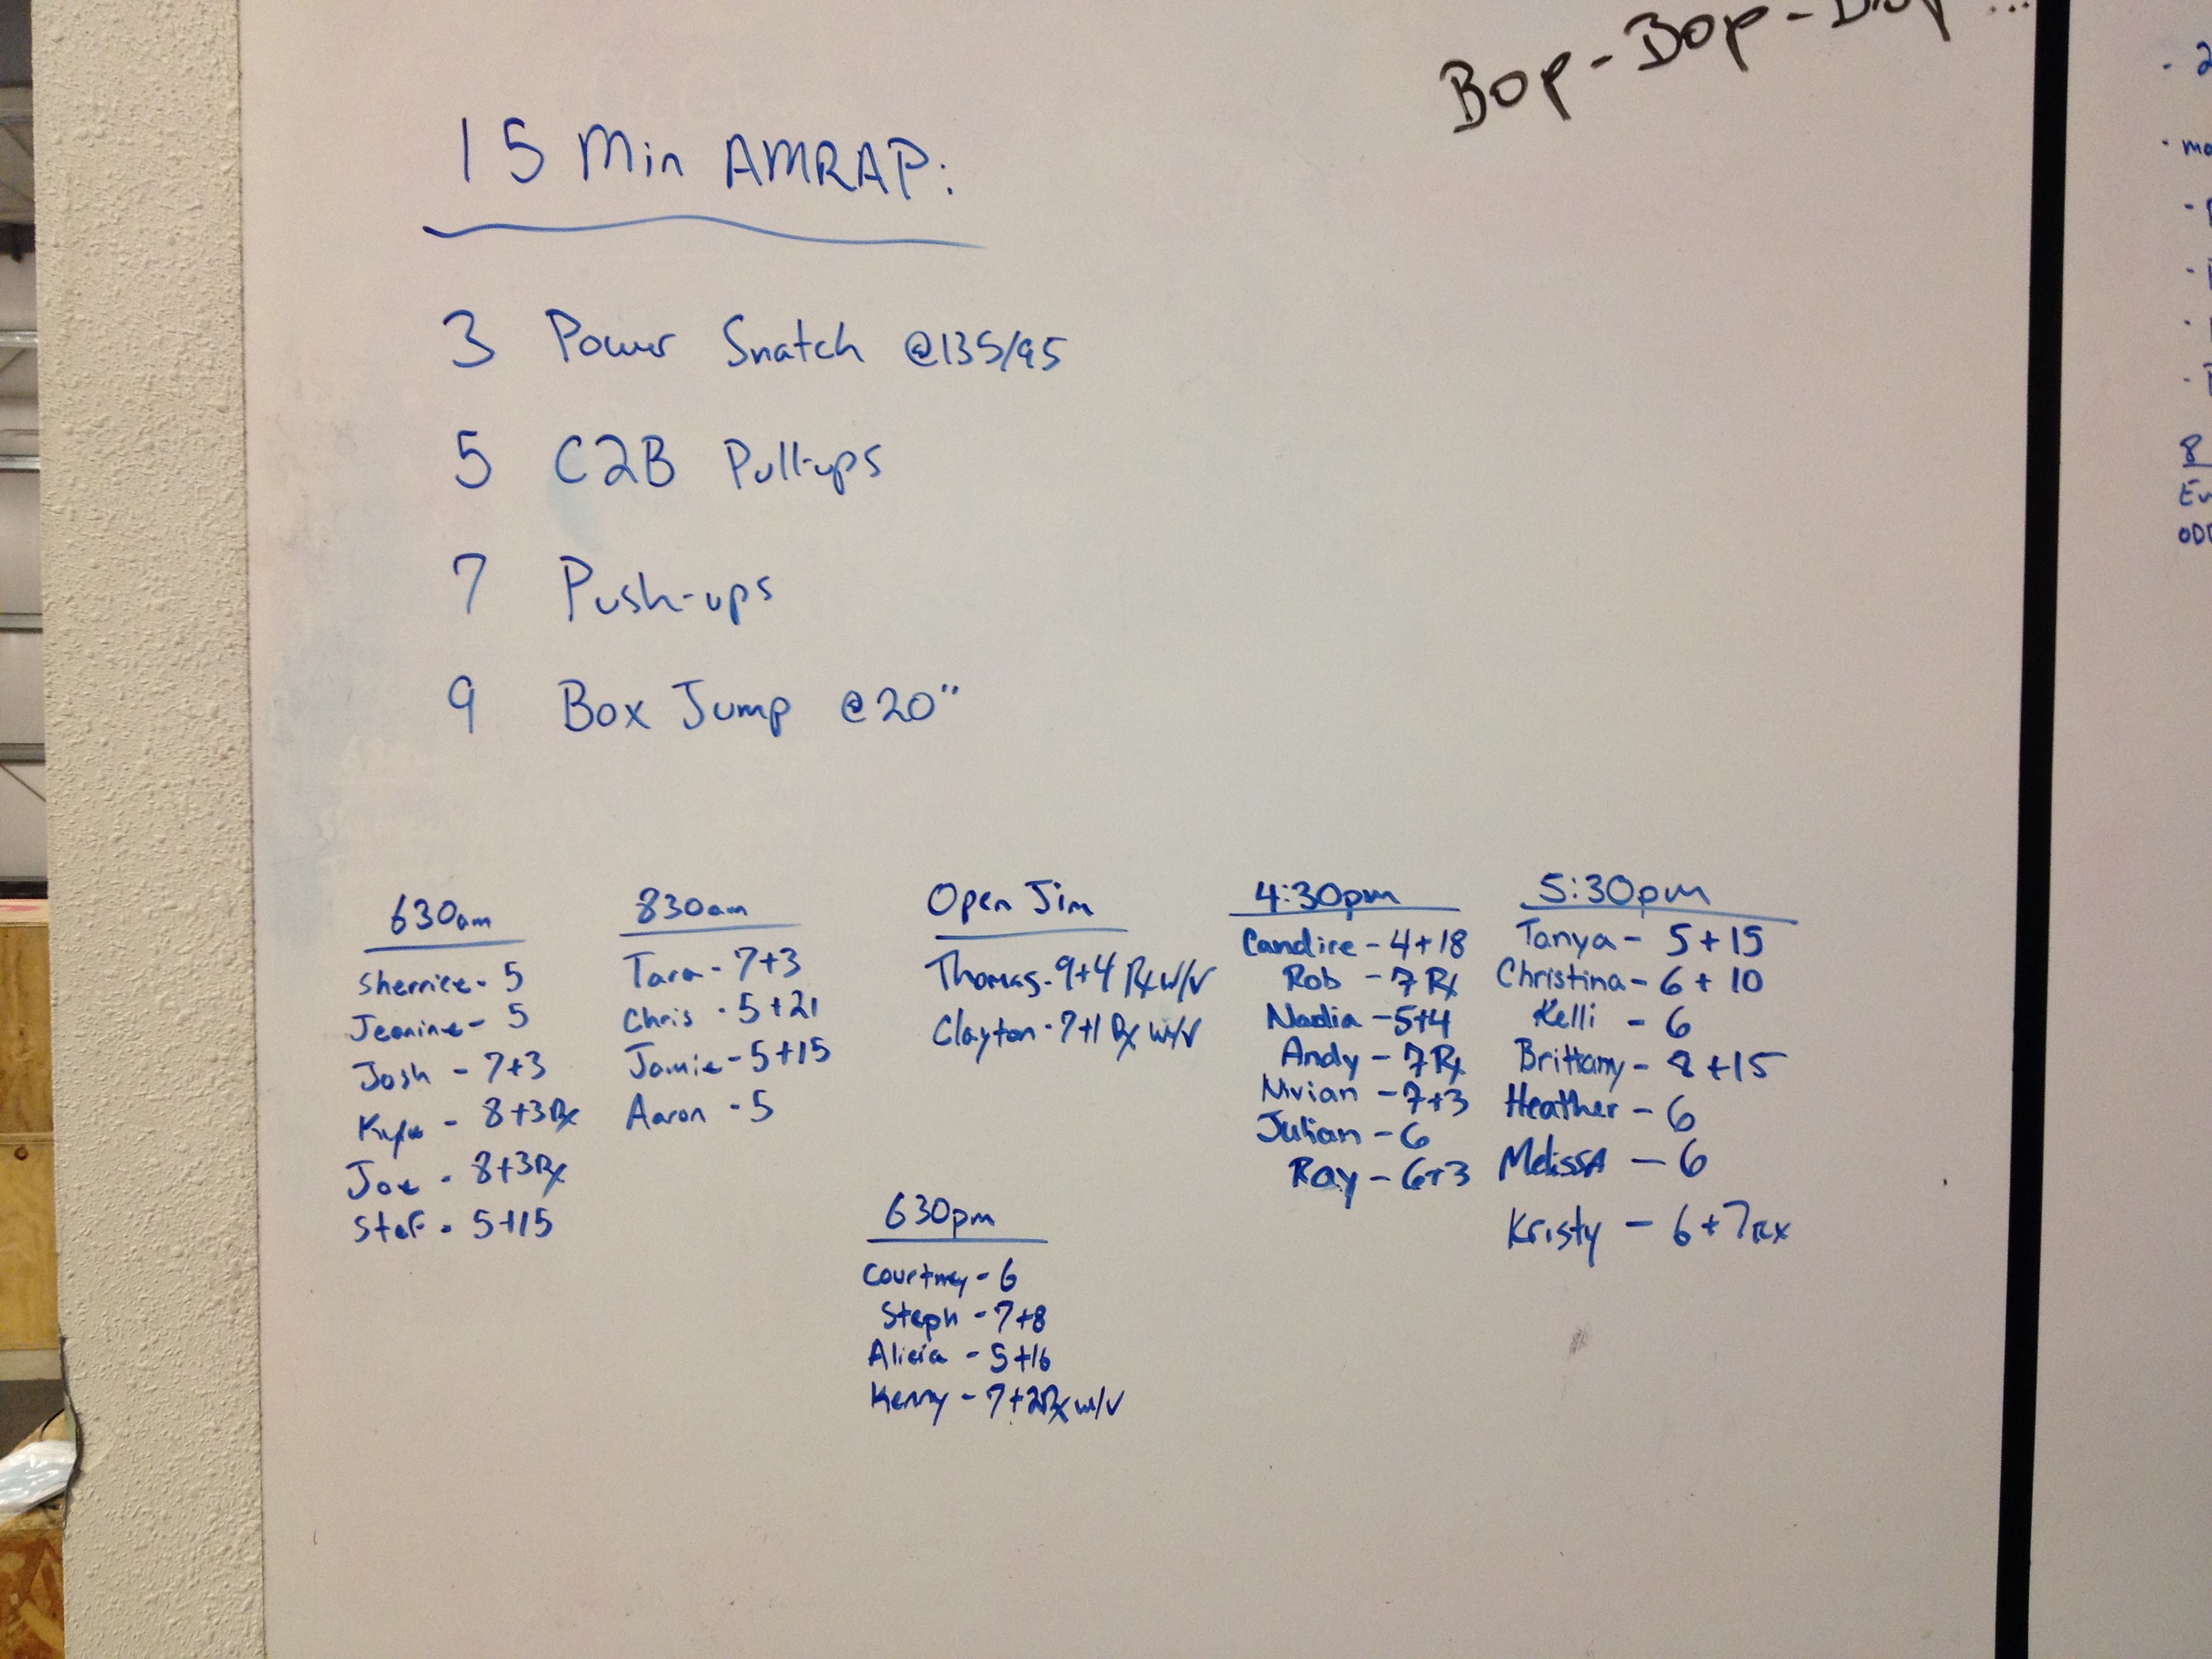 Bop-Bop-Bop...
15 Min AMRAP:
3 Power Snatch @135/95
5 C2B Pull-ups
7 Push-ups
9 Box Jump @20"
630am
Sherrice - 5
Jeanine - 5
Josh - 7+3
Kyle - 8+3 Rx
Joe - 8+3 Rx
Stef - 5+15
830am
Tara - 7+3
Chris - 5+21
Jamie - 5+15
Aaron - 5
Open Jim
Thomas - 9+4 Rx w/v
Clayton - 7+1 Rx w/v
630pm
Courtney - 6
Steph - 7+8
Alicia - 5+16
Kenny - 7+2 Rx w/v
4:30pm
Candice - 4+18
Rob - 7 Rx
Nadia - 5+4
Andy - 7 Rx
Nivian - 7+3
Julian - 6
Ray - 6+3
5:30pm
Tanya - 5+15
Christina - 6+10
Kelli - 6
Brittany - 8+15
Heather - 6
MelissA - 6
Kristy - 6+7 Rx
8